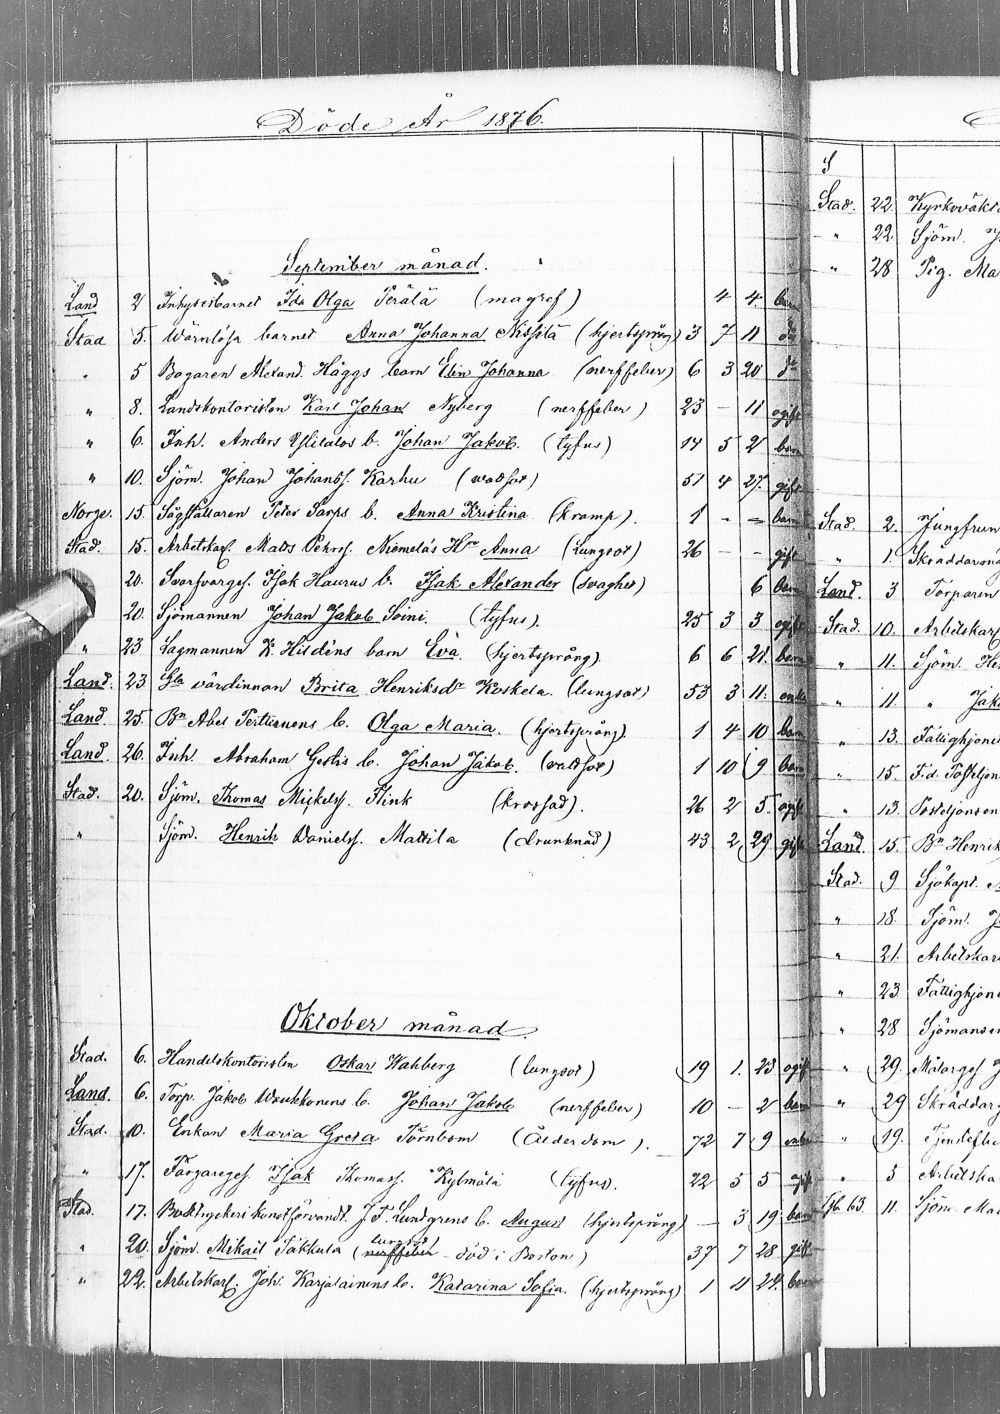 Döde År 1876.
September månad.
Land 2 Inhysesbarnet Ida Olga Perälä (magref) 4 4 barn
Stad 5. Wärnlösa barnet Anna Johanna Nissilä (hjertsprång) 3 7 11 do
" 5 Bagaren Alexand. Häggs barn Elin Johanna (nerffeber) 6 3 20 do
" 8. Landskontoristen Karl Johan Nyberg (nerffeber) 23 – 11 ogift
" 6. Inh. Anders Ylitalos b. Johan Jakob. (tyfus) 14 5 2 barn
" 10. Sjöm. Johan Johanss. Karhu (wattsot) 51 4 27. gift
Norge. 15. Sågställaren Peter Sarps b. Anna Kristina (kramp). 1 – – barn
Stad. 15. Arbetskarl. Matts Pehrss. Niemeläs Hu Anna (Lungsot) 26 – – gift
20. Svarfvarges. Isak Haurus b. Isak Alexander (svaghet) 6 barn
20. Sjömannen Johan Jakob Soini. (tyfus). 25 3 3 ogift
" 23 Lagmannen K. Hildéns barn Eva (hjertsprång) 6 6 21. barn
Land. 23 Gla värdinnan Brita Henriksdr Koskela. (lungsot) 53 3 11. enka
Land. 25. Bn Abel Perttunens b. Olga Maria. (hjertsprång) 1 4 10 barn
Land. 26. Inh. Abraham b. Johan Jakob. (wattsot) 1 10 9 barn
Stad. 20. Sjöm. Thomas Mickelss. Flink (krossad). 26 2 5. ogift
" Sjöm. Henrik Danielss. Mattila (drunknad) 43 2 29 gift
Oktober månad.
Stad. 6. Handelskontoristen Oskar Wahberg (lungsot) 19 1. 23 ogift
Land. 6. Torp. Jakob Waukkonens b. Johan Jakob (nerffeber) 10 – 2 barn
Stad. 10. Enkan Maria Greta Törnbom (Ålderdom). 72 7 9 enka
" 17. Färgareges. Isak Thomass. Kylmälä (tyfus). 22 5 5 ogift
Stad. 17. Boktryckerikonstförvandt. J. F. Lundgrens b. August (hjertsprång) – 3 19. barn
lungsot
" 20. Sjöm. Mikael Takkula (nerffeber – död i Boston) 37 7 28 gift
" 22. Arbetskarl. Joh. Karjalainens b. Katarina Sofia. (hjertsprång) 1 11 24. barn
S
Stad. 22. Kyrkovakt
" 22 Sjöm.
" 28 Pig. Ma
Stad. 2. Jungfrun
" 1. Skräddaren
Land. 3 Torparen
Stad. 10. Arbetskarl
" 11. Sjöm. He
" 11. " Jak
" 13. Fattighjone
" 15. F.d. Postiljon
" 13. Postiljonsen
Land. 15. Bn Henrik
Stad. 9 Sjökapt.
" 18. Sjöm.
" 21. Arbetskar
" 23 Fattighjon
" 28 Sjömansen
" 29. Målarges J
" 29 Skräddar
" 19.
" 5 Arbetska
63. 11. Sjöm. Ma